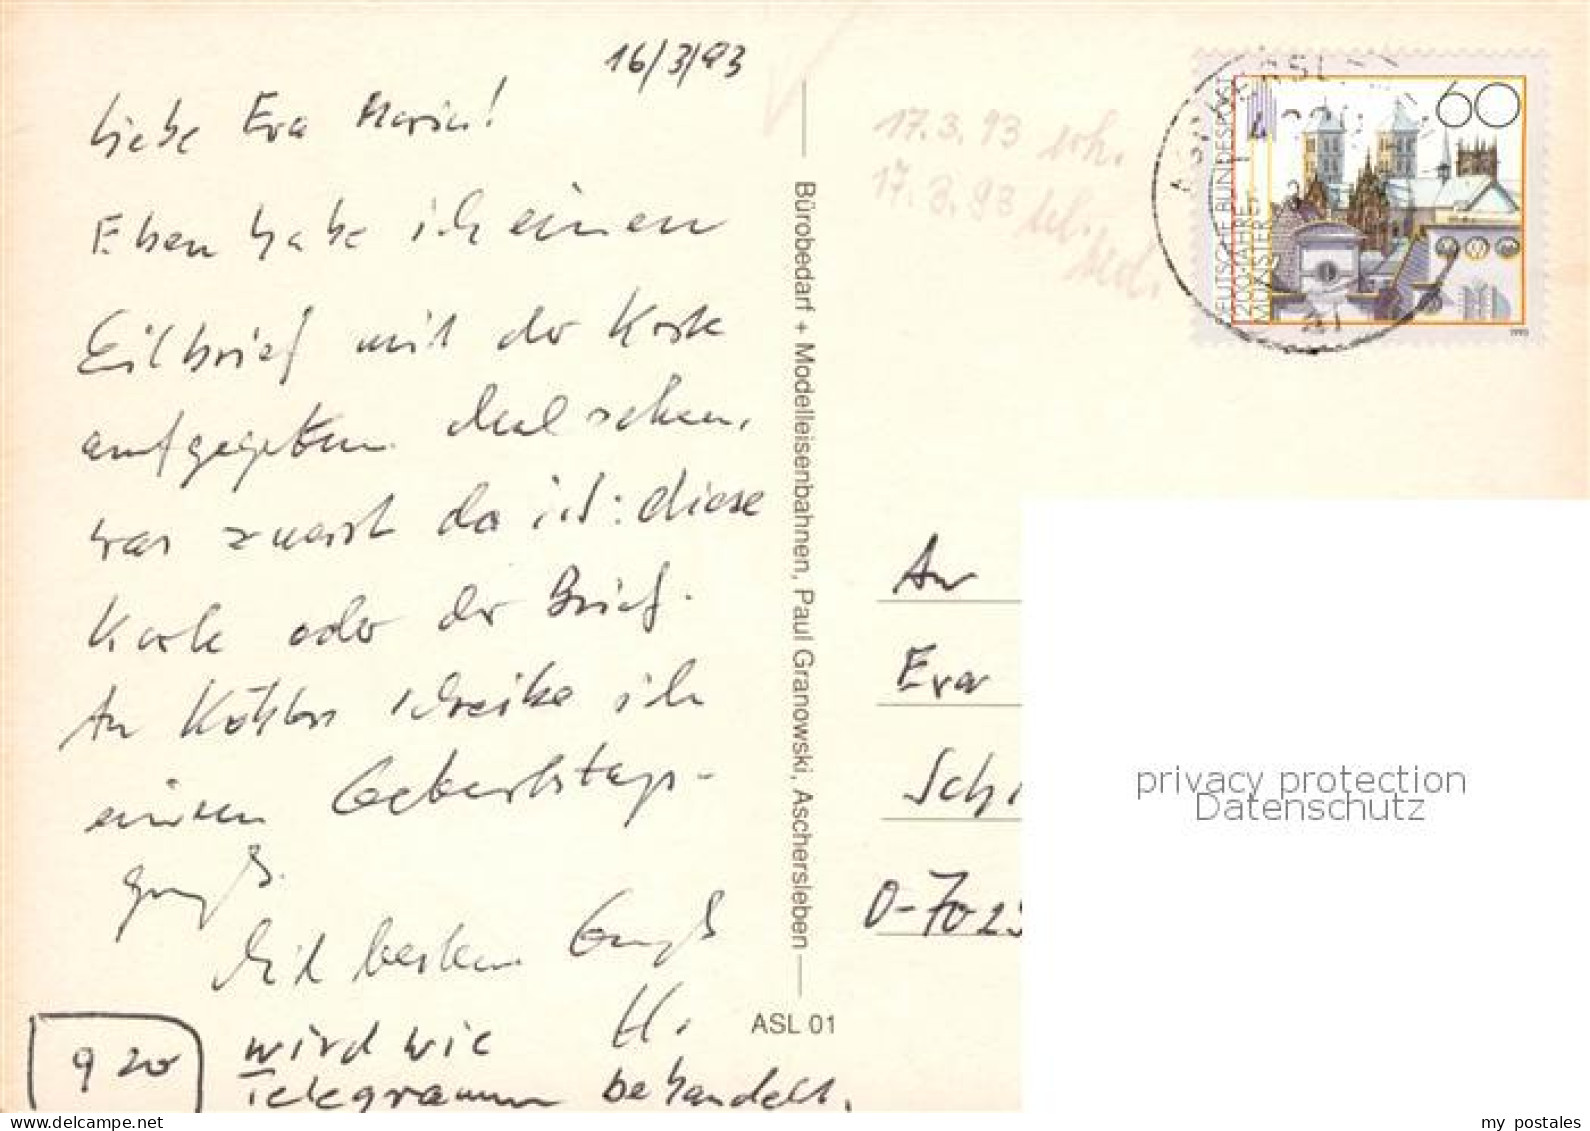 16/3/93
Liebe Eva Maria!
Eben habe ich einen
Eilbrief mit der Karte
aufgegeben. Mal sehen,
was zuerst da ist: diese
Karte oder der Brief.
An Köhlers schreibe ich
einen Geburtstags-
gruß.
Mit besten Gruß
H.
9 20
wird wie
Telegramm behandelt.
Bürobedarf + Modelleisenbahnen, Paul Granowski, Aschersleben
ASL 01
17.3.93
17.3.93 tel.
60
DEUTSCHE BUNDESPOST
1200 JAHRE
MÜNSTER
1993
An
Eva
Sch
O-702
privacy protection
Datenschutz
my postales